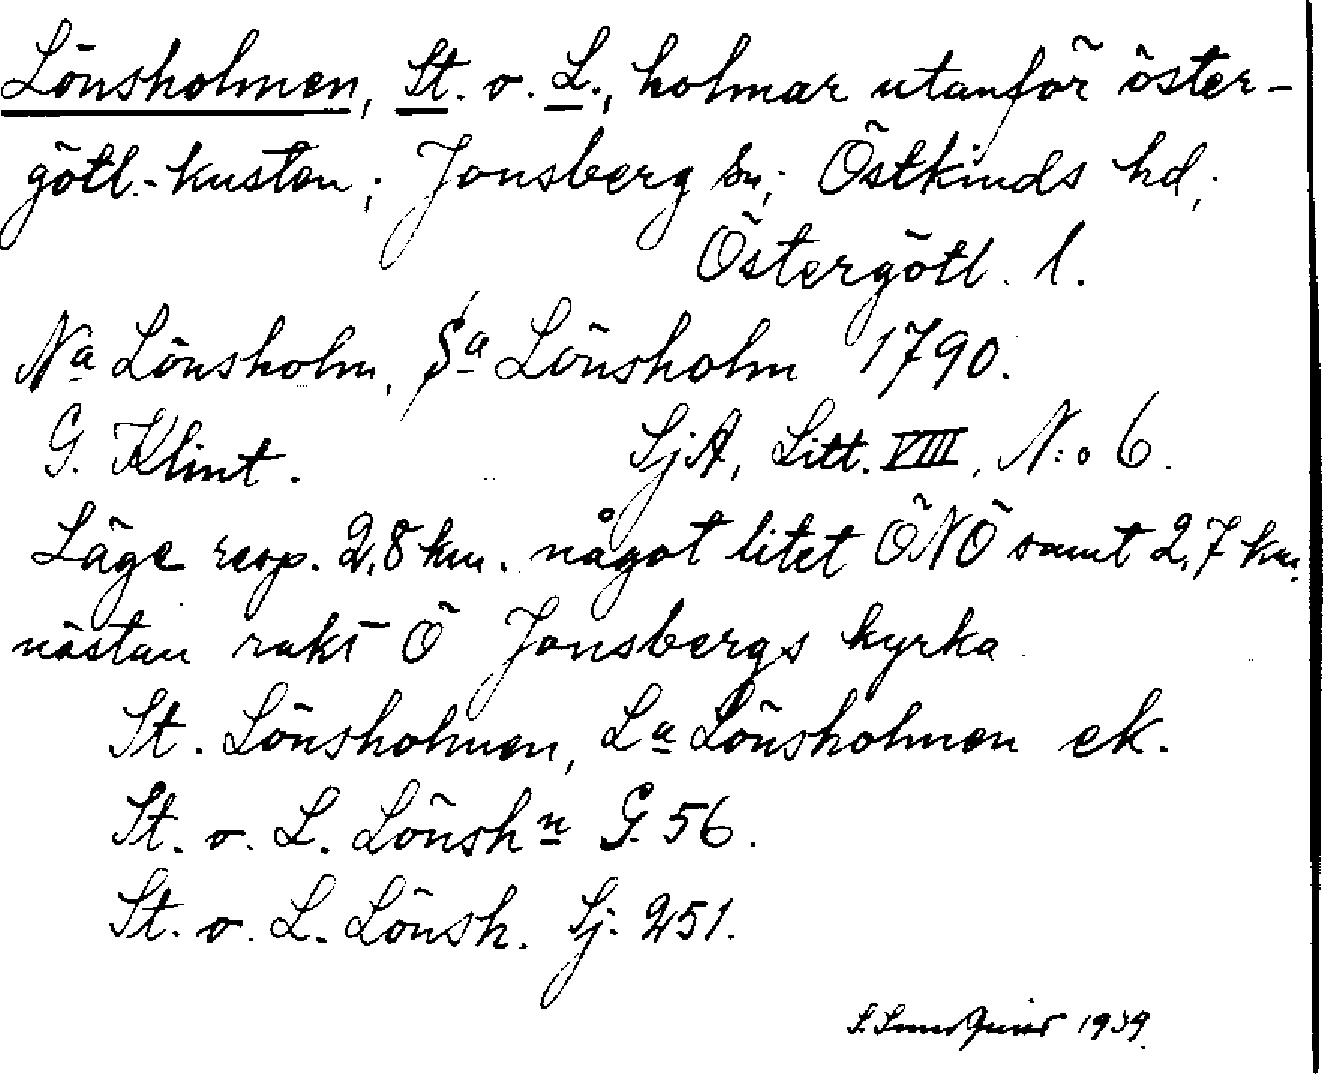 Lönsholmen, St. o. L., holmar utanför öster-
götl.-kusten; Jonsberg sn; Östkinds hd,
Östergötl. l.
Na Lönsholm, Sa Lönsholm 1790.
G. Klint. SjA, Litt. VIII, N:o 6.
Läge resp. 2,8 km. något litet ÖNÖ samt 2,7 km.
nästan rakt Ö Jonsbergs kyrka
St. Lönsholmen, La Lönsholmen ek.
St. o. L. Lönshn G. 56.
St. o. L. Lönsh. Sj. 251.
1939.